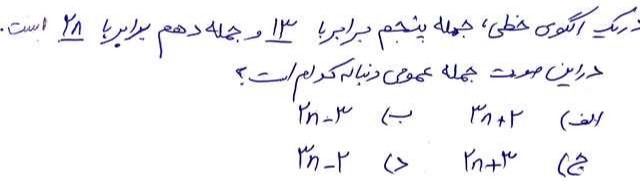 در یک الگوی خطی، جمله پنجم برابر با ۱۳ و جمله دهم برابر با ۲۸ است.
در این صورت جمله عمومی دنباله کدام است؟
الف) ۳n+۲ ب) ۲n-۳
ج) ۲n+۳ د) ۳n-۲